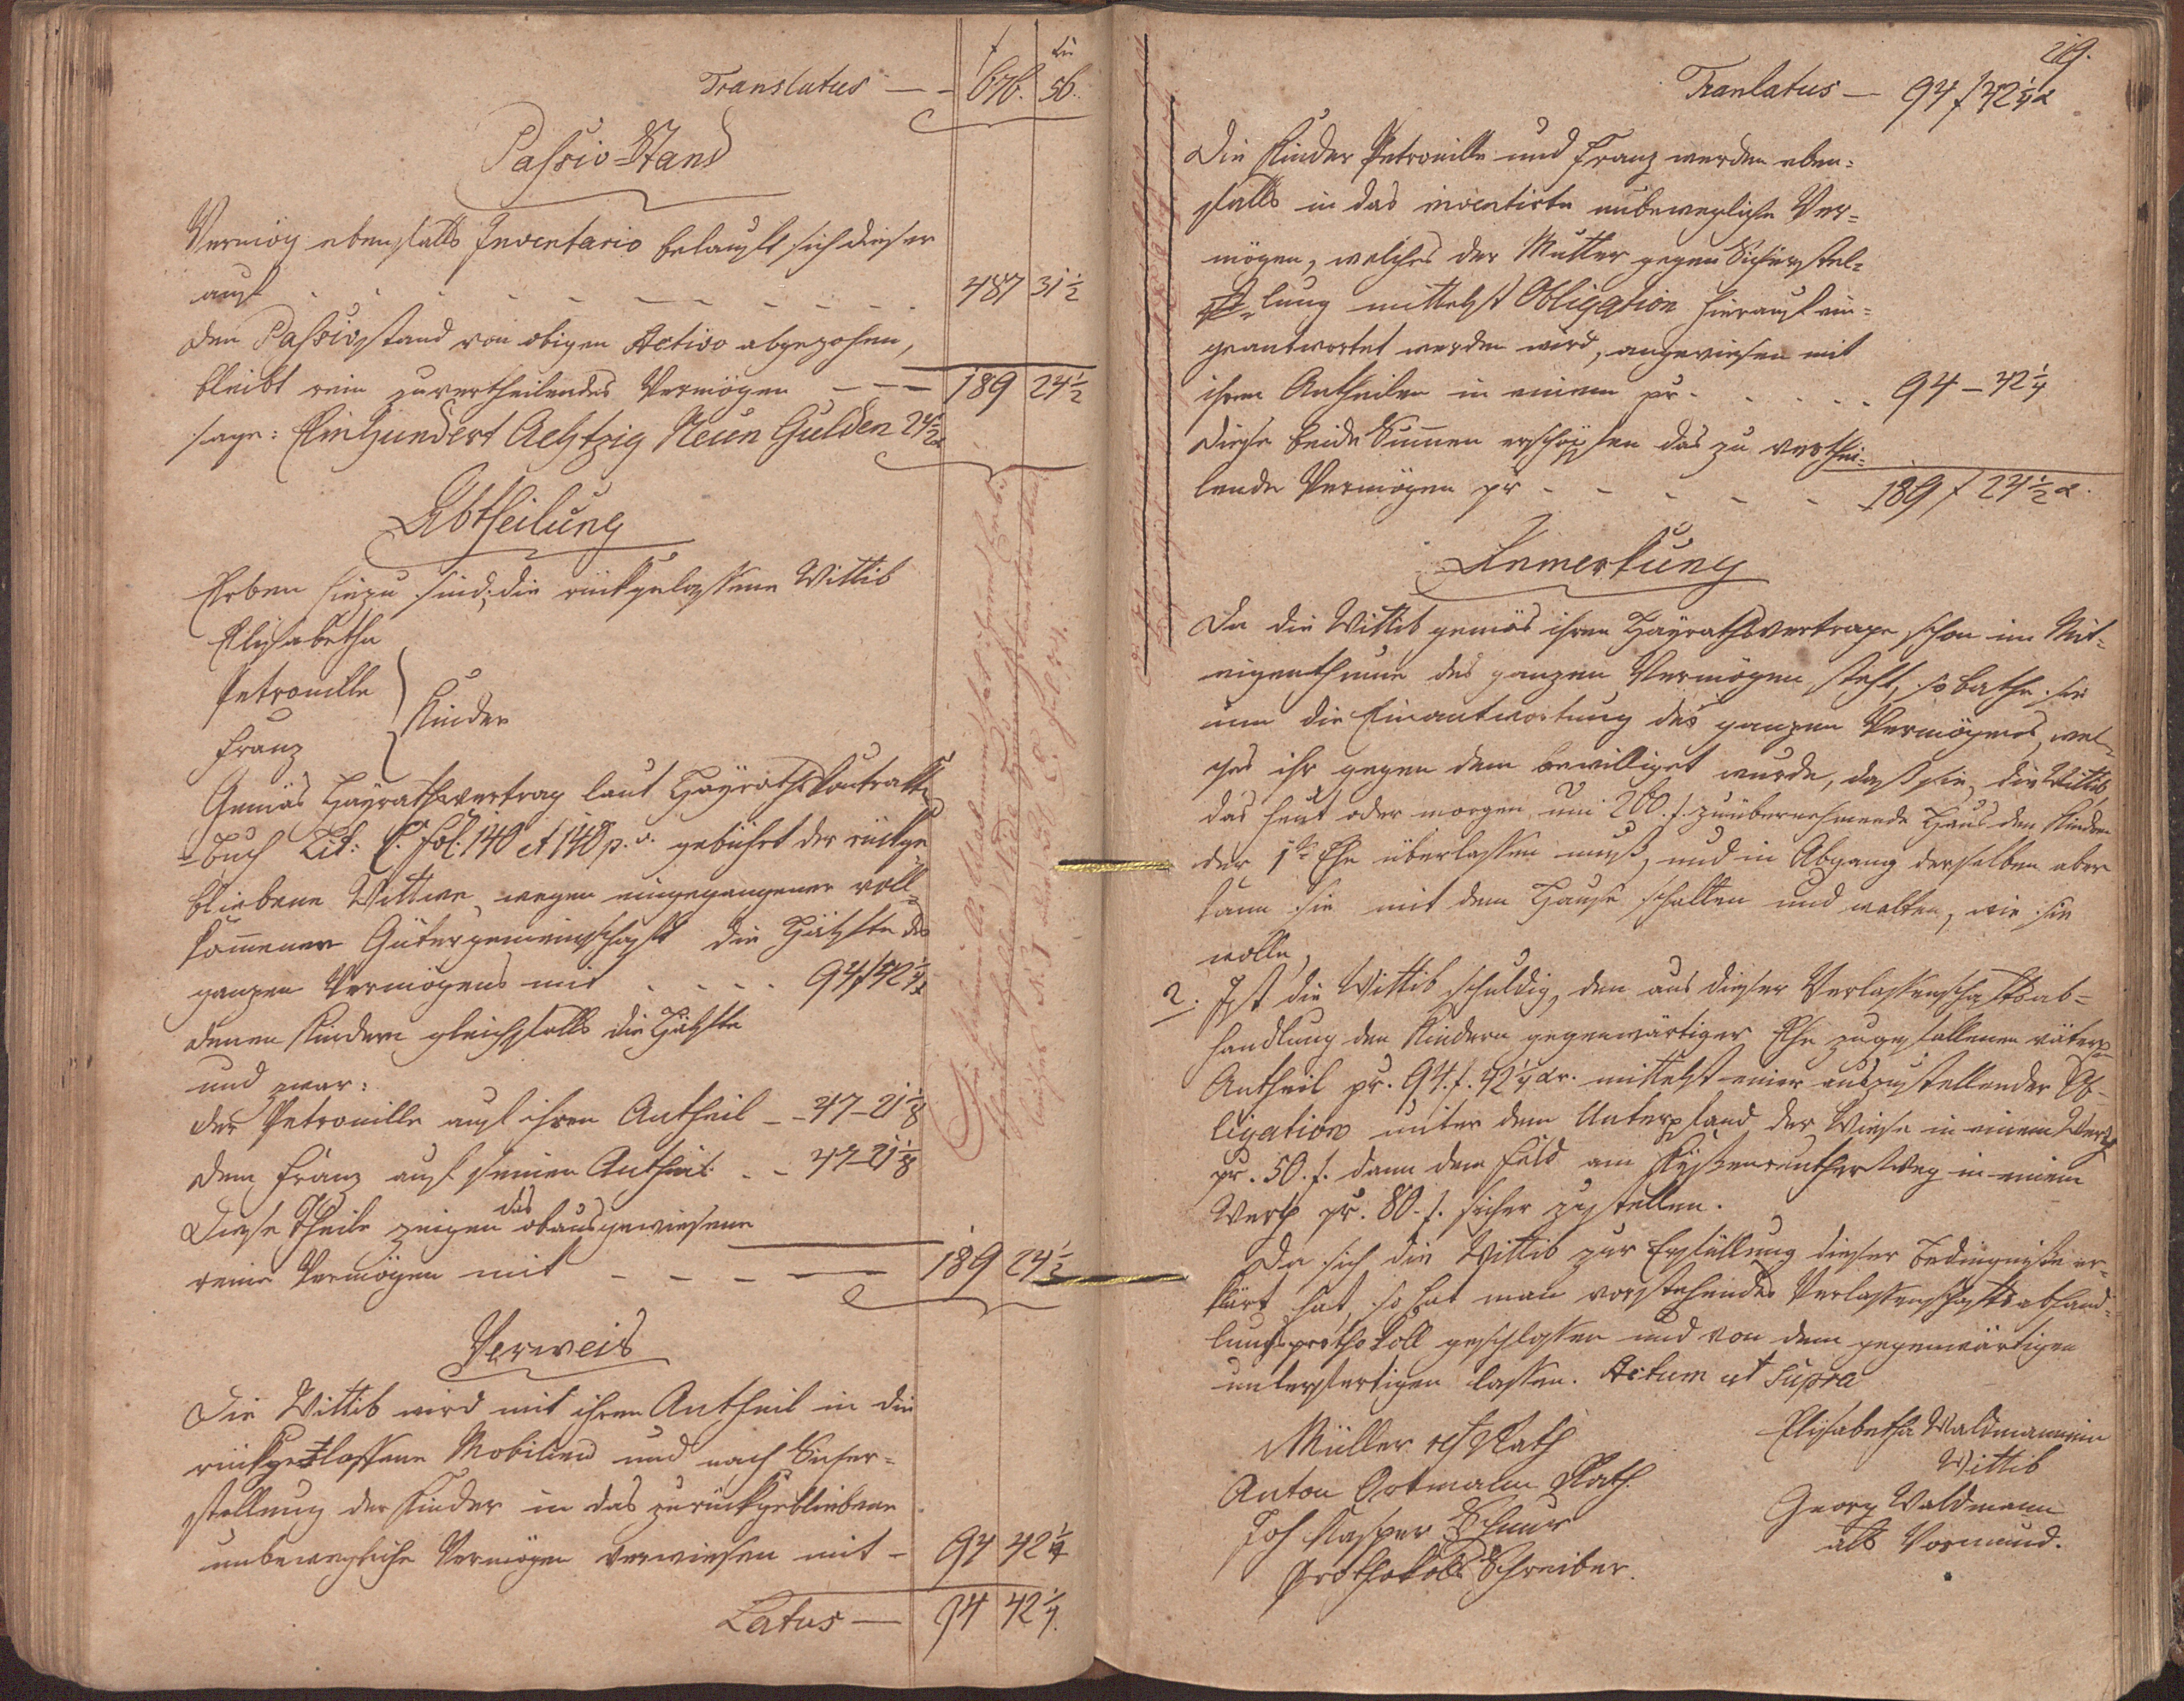 f xr
Translatus — — 676. 56.
Passiv-Stand
Vermög ebenfalls Inventario belauft sich dieser
auf - - - - - - - - - 487 31 1/2
den Passivstand von obigen Activo abgezohen,
bleibt rein zuvertheilendes Vermögen - - - 189 24 1/2
sage: Einhundert Achtzig Neun Gulden 24 1/2 x
Abtheilung
Erben hiezu sind: die rückgelassene Wittib
Elisabetha
Petronille
Kinder
Franz
Gemäs Heyrathsvertrag laut Heyraths Contrakten
=buch Lit: C. Fol: 140 et 140 p. v. gebührt der rückge=
bliebene Wittwe, wegen eingegangener voll=
kommener Gütergemeinschaft die Hälfte des
ganzen Vermögens mit . . . . 94 f 42 1/4 x
denen Kindern gleichfalls die Hälfte
und zwar:
der Petronille auf ihren Antheil - - 47 - 21 1/8
dem Franz auf seinen Antheil - - 47 - 21 1/8
Diese Theile zeigen das obausgewiesene
reine Vermögen mit - - - — 189 24 1/2
Verweis
Die Wittib wird mit ihren Antheil in die
rückgelassene Mobilien und nach Sicher=
stellung der Kinder in das zurückgebliebene
unbewegliche Vermögen verwiesen mit - 94 42 1/4
Latus — 94 42 1/4
219.
Tranlatus — 94 f 42 1/4 x
Die Kinder Petronille und Franz werden eben=
falls in das inventirte unbewegliche Ver=
mögen, welches der Mutter gegen Sicherstel=
lung mittelst Obligation hierauf ein=
geantwortet werden wird, angewiesen mit
ihren Antheilen in einem pr - - - - - 94 - 42 1/4
Diese beide Summen erschöpfen das zu verthei=
lende Vermögen pr - - - - - 189 f 24 1/2 x.
Anmerkung
Da die Wittib gemäs ihren Heyrathsvertrage schon im Mit=
eigenthume des ganzen Vermögen steht, so bathe sie
um die Einantwortung des ganzen Vermögens, wel=
ches ihr gegen dem bewilliget wurde, daß sie, die Wittib
das heut oder morgen um 200. f. zuübernehmende Haus den Kindern
der 1te Ehe überlassen muß, und in Abgang derselben aber
kann sie mit dem Hause schalten und walten, wie sie
wolle,
2. Ist die Wittib schuldig, den aus dieser Verlassenschaftsab=
handlung den Kindern gegenwärtiger Ehe zugefallenen väterln
Antheil pr. 94. f. 42 1/4 xr. mittelst einer auszustellender Ob=
ligation unter dem Unterpfand der Wiese in einem Werth
pr. 50. f. dann dem Feld am weg in einem
Werth pr. 80. f. sicher zustellen.
Da sich die Wittib zur Erfüllung dieser Bedingniße er=
klärt hat, so hat man vorstehendes Verlassenschaftsabhand=
lungsprothokoll geschlossen und von dem gegenwärtigen
unterfertigen lassen. Actum ut Supra
Müller Rath
Anton Ortmann Rath.
Joh Kasper
Prothokoll Schreiber.
Elisabetha Waldmannin
Wittib
Georg Waldmann
als Vormund.